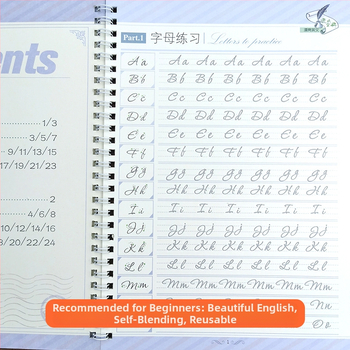 ents
1/3
3/5/7
9/11/13/15
17/19/21/23
2
4/6/8
10/12/14/16
18/20/22/24
Part.1 字母练习 Letters to practice
Aa Aa Aa Aa Aa Aa Aa
Bb Bb Bb Bb Bb Bb Bb
Cc Cc Cc Cc Cc Cc Cc
Dd Dd Dd Dd Dd Dd Dd
Ee Ee Ee Ee Ee Ee Ee
Ff Ff Ff Ff Ff Ff Ff
Gg Gg Gg Gg Gg Gg Gg
Hh Hh Hh Hh Hh Hh Hh
Ii Ii Ii Ii Ii Ii Ii
Jj Jj Jj Jj Jj Jj Jj
Kk Kk Kk Kk Kk Kk Kk
Ll Ll Ll Ll Ll Ll Ll
Mm Mm Mm Mm Mm Mm Mm
Nn
Oo
Recommended for Beginners: Beautiful English,
Self-Blending, Reusable
1